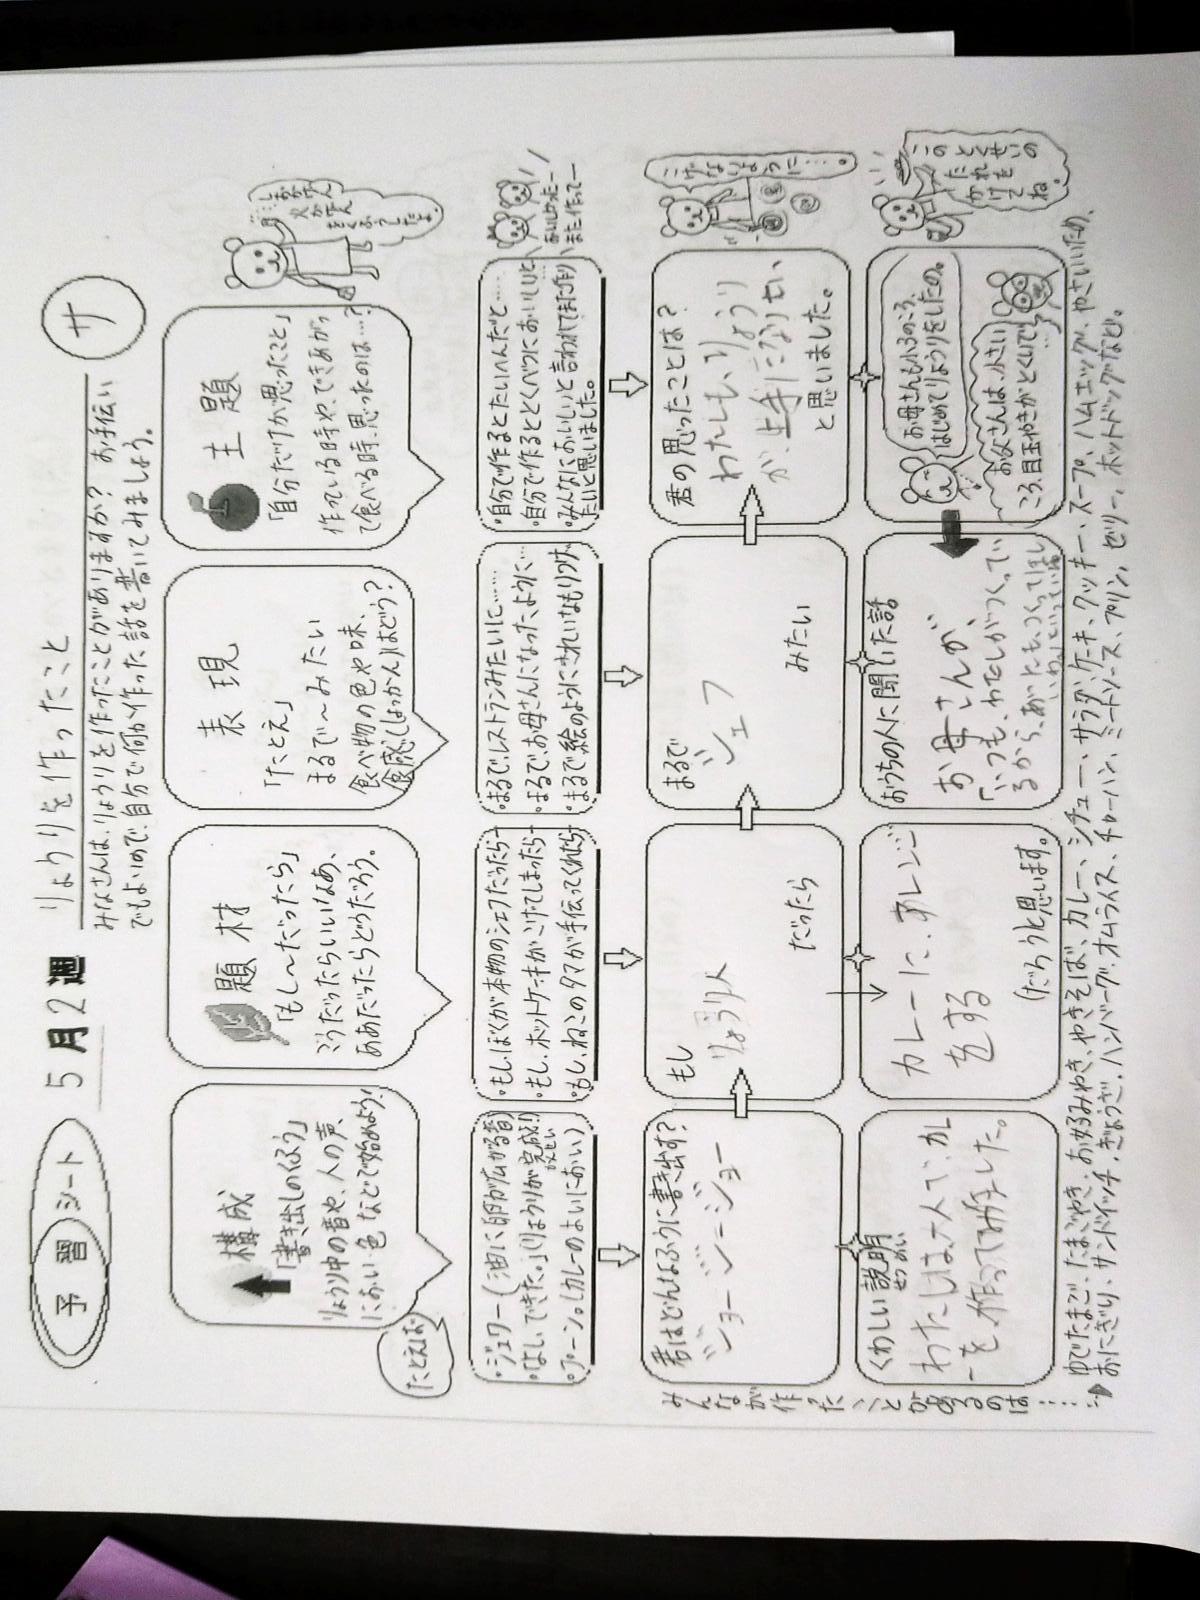 予習シート
5月2週
りょうりを作ったこと
サ
みなさんは、りょうりを作ったことがありますか? お手伝い
でもよいので、自分で何か作った話を書いてみましょう。
構成
「書き出しのくふう」
りょうり中の音や、人の声、
におい、色などで始めよう!
題材
「もし〜だったら」
こうだったらいいなあ、
ああだったらどうだろう。
表現
「たとえ」
まるで〜みたい
食べ物の色や味、
食感(しょっかん)はどう?
主題
「自分だけが思ったこと」
作っている時や、できあがっ
て食べる時、思ったのは…?
たとえば
・ジュワー(油に卵が広がる音)
・「よし、できた。」(りょうりが完成!)
かんせい
・プーン。(カレーのよいにおい)
・もし、ぼくが本物のシェフだったら…
・もし、ホットケーキがこげてしまったら…
・もし、ねこのタマが手伝ってくれたら…
・まるで、レストランみたいに……
・まるで、お母さんになったように…
・まるで絵のようにきれいなもりつけ。
・自分で作るとたいへんだと……
・自分で作るととくべつにおいしいと…
・みんなにおいしいと言われてまた作り
たいと思いました。
おいしかったー
また作ってー
君はどんなふうに書き出す?
ジョージージョー
もし
りょうり人
だったら
まるで
シェフ
みたい
君の思ったことは?
わたしも、りょうり
が、上手になりたい
と思いました。
こげないように……。
くわしい説明
せつめい
わたしは大人で、カレ
ーを作ってみました。
カレーに、アレンジ
をする
(だろう)と思います。
おうちの人に聞いた話
お母さんが、
「いつも、わたしがつくってい
るから、あなたもつくってほし
お母さんも小3のころ、
はじめてりょうりをしたの。
お父さんは、小さい
ころ、目玉やきがとくいで
…
みんなが作ったことがあるのは……
ゆでたまご、たまごやき、お好みやき、やきそば、カレー、シチュー、サラダ、ケーキ、クッキー、スープ、ハムエッグ、やさいいため、
おにぎり、サンドイッチ、ぎょうざ、ハンバーグ、オムライス、チャーハン、ミートソース、プリン、ゼリー、ホットドッグなど。